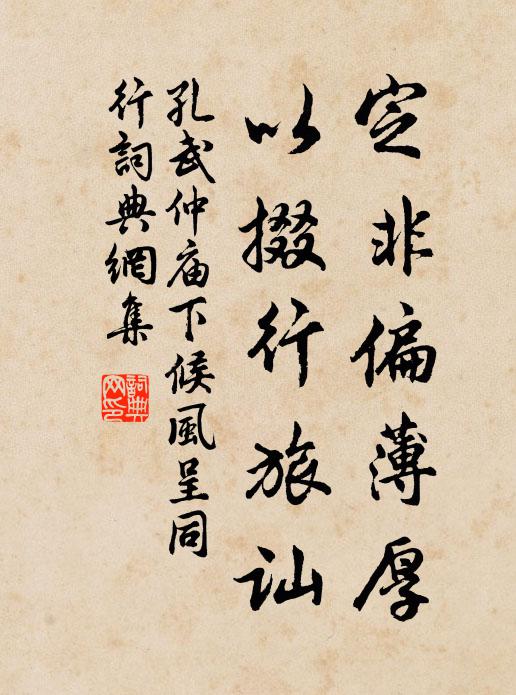 定非偏薄厚
以掇行旅讪
孔武仲庙下候風呈同
行詞典網集
詞典
网印